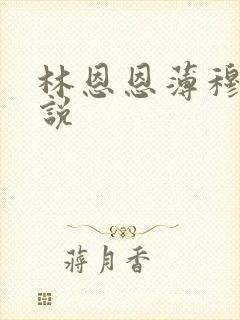 林恩恩薄穆
説
蔣月香